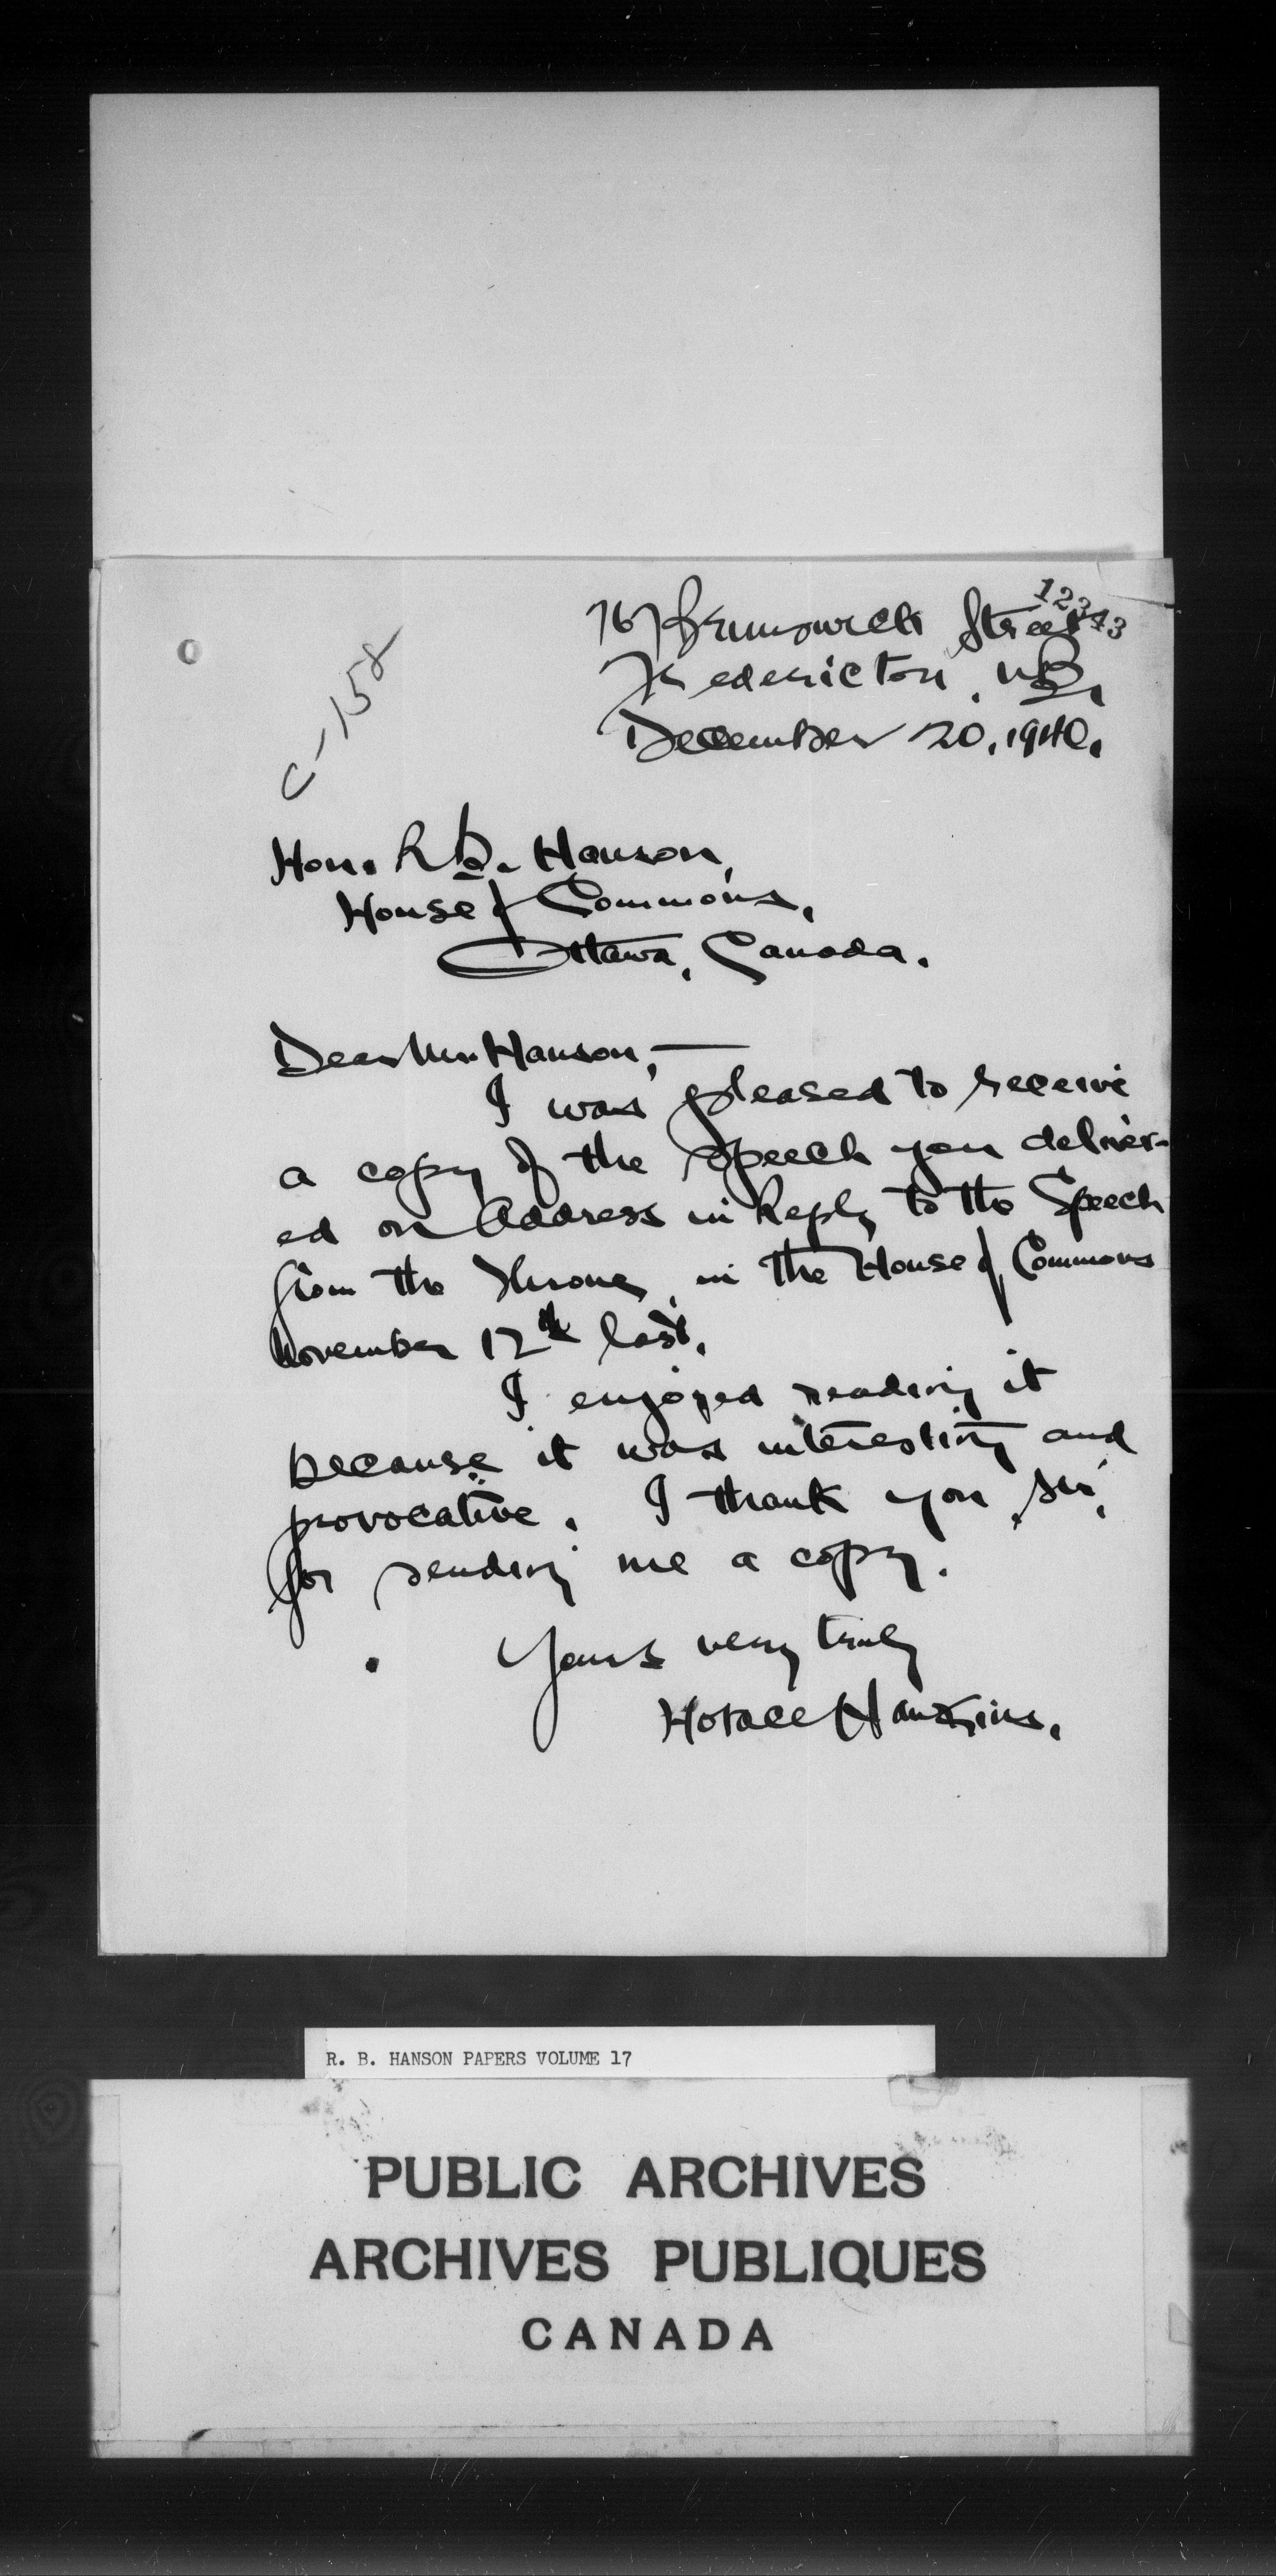 12343
767 Brunswick Street
Fredericton, N.B.,
December 20, 1940.
C-158
Hon. R.B. Hanson,
House of Commons,
Ottawa, Canada.
Dear Mr. Hanson,—
I was pleased to receive
a copy of the speech you deliver-
ed on Address in Reply to the Speech
from the Throne, in the House of Commons
November 12th last.
I enjoyed reading it
because it was interesting and
provocative. I thank you, sir,
for sending me a copy.
Yours very truly
Horace Hawkins.
R. B. HANSON PAPERS VOLUME 17
PUBLIC ARCHIVES
ARCHIVES PUBLIQUES
CANADA